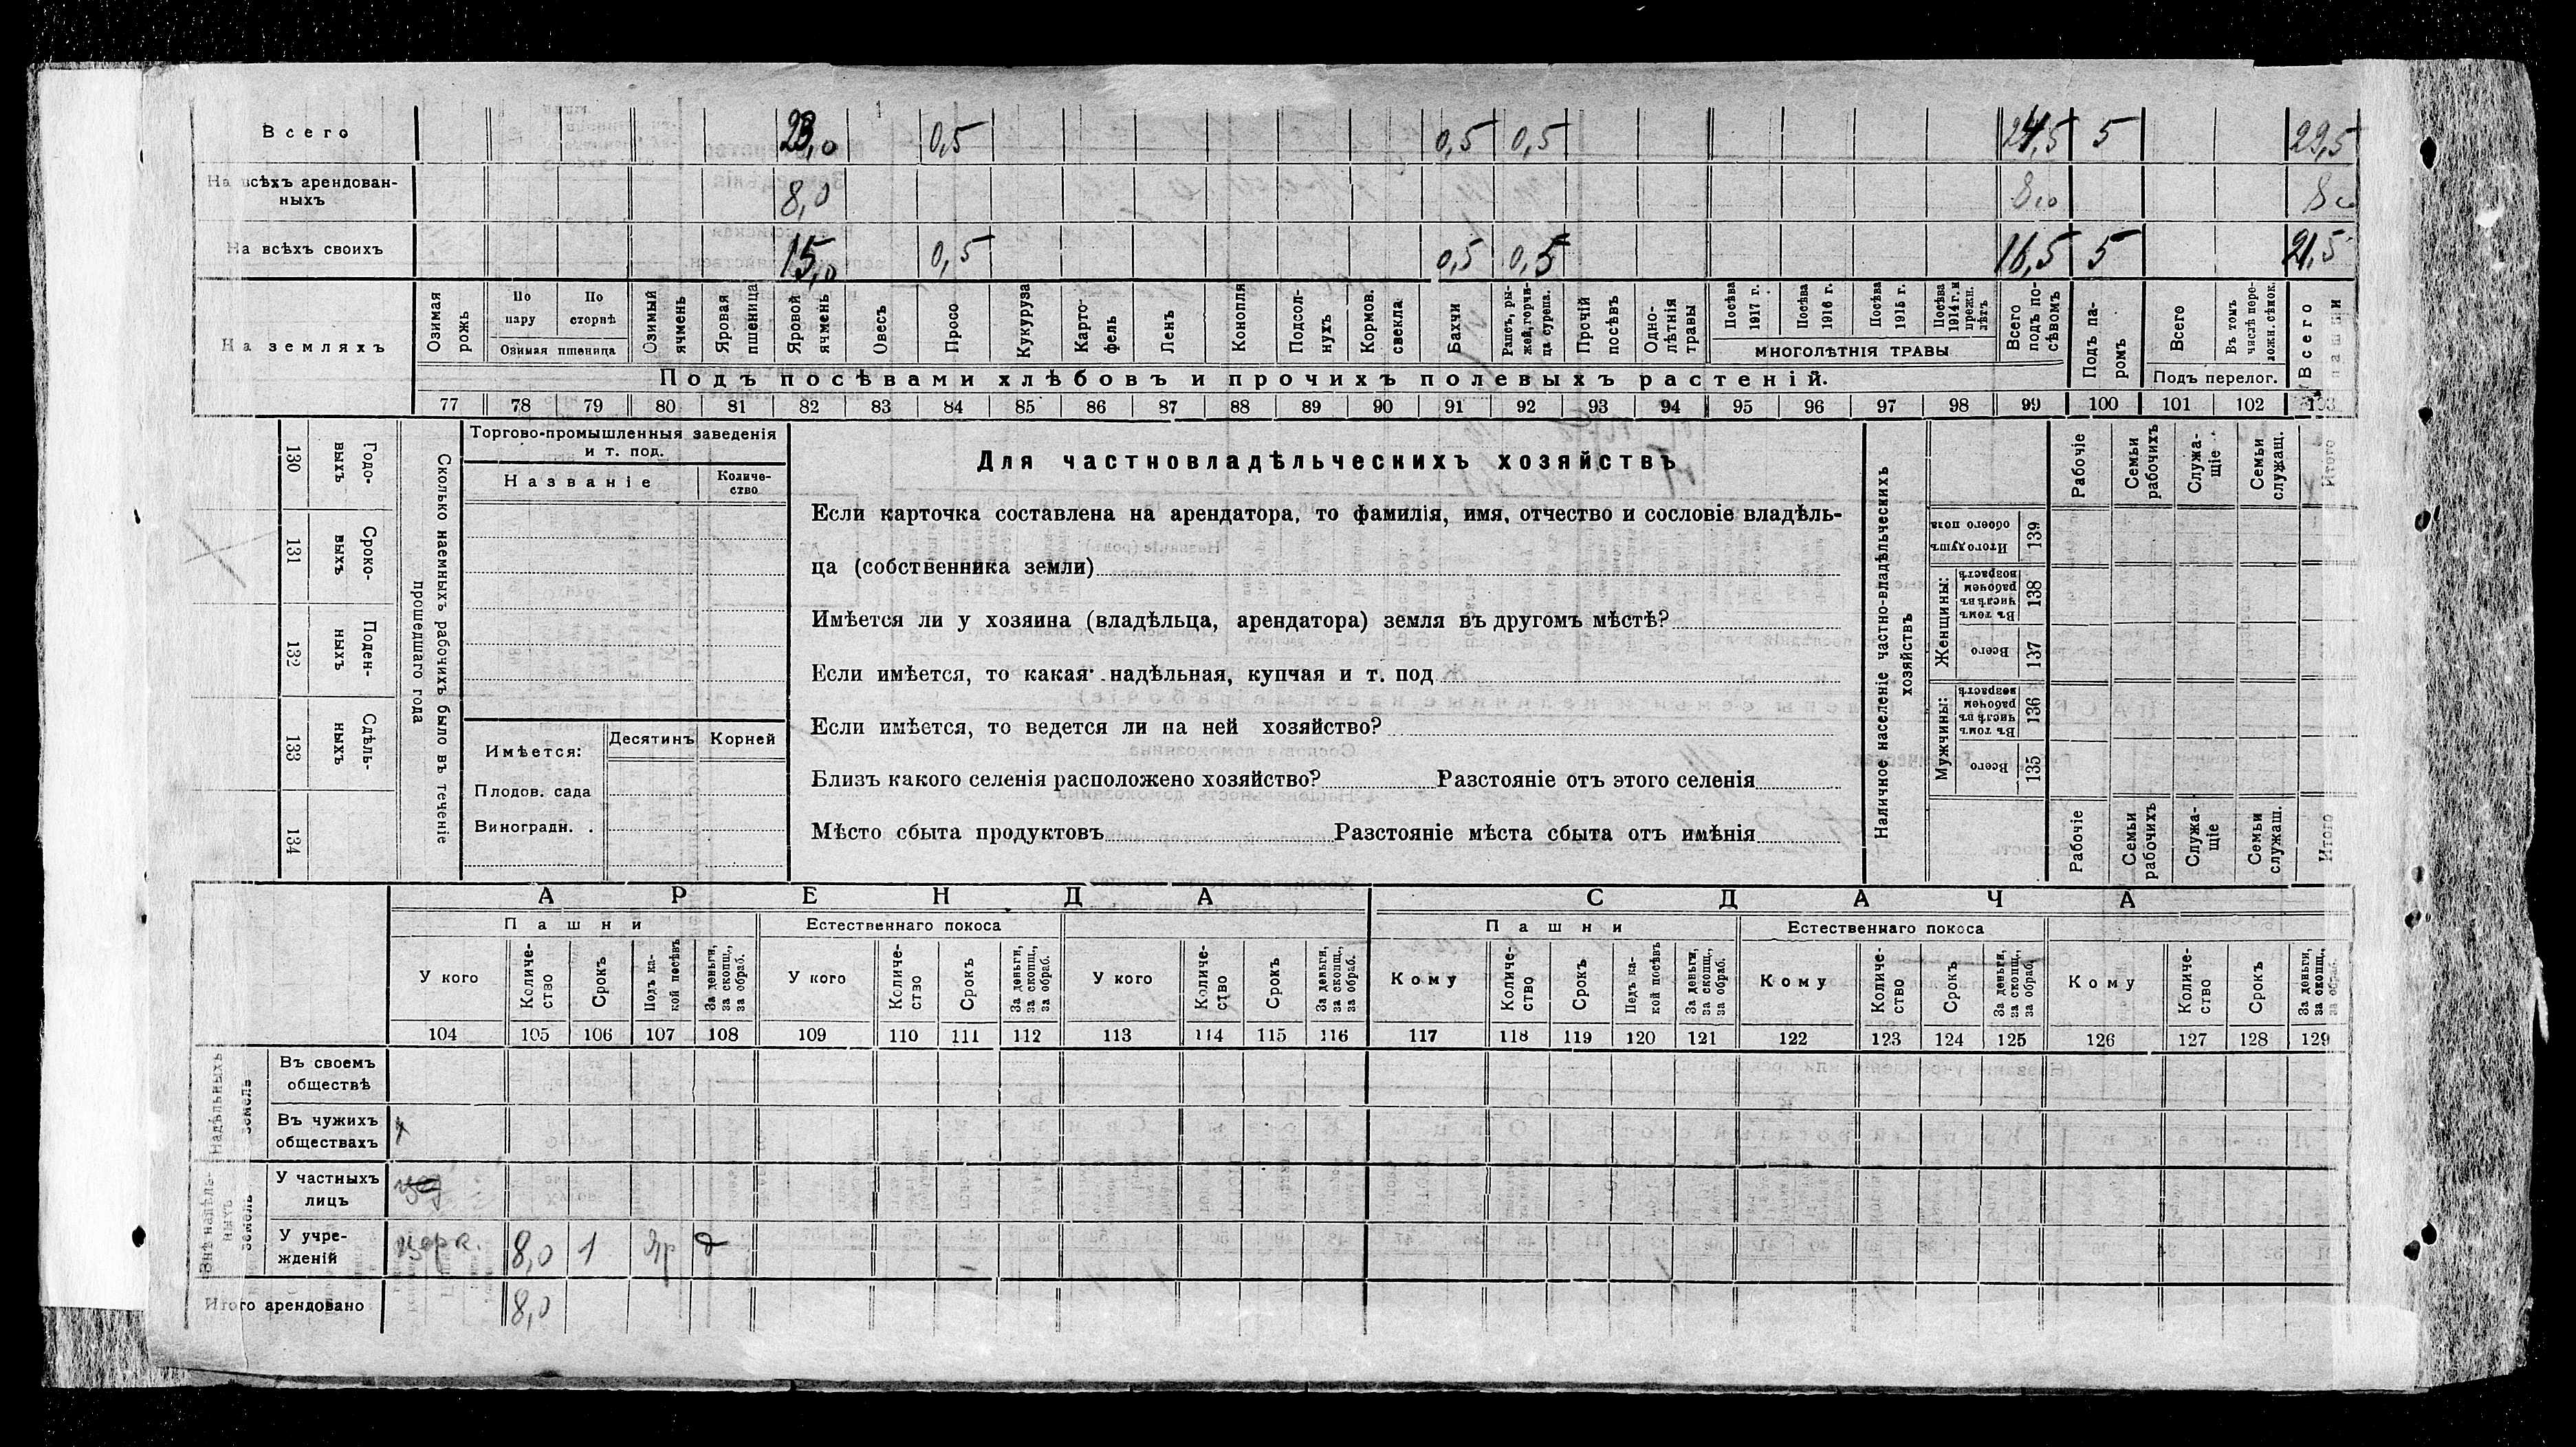 Всего 23,0 0,5 0,5 0,5 24,5 5 29,5
На всѣхъ арендован-
ныхъ 8,0 8,0 8,0
На всѣхъ своихъ 15,0 0,5 0,5 0,5 16,5 5 21,5
На земляхъ
Озимая рожь
По пару
По сторнѣ
Озимая пшеница
Озимый ячмень
Яровая пшеница
Яровой ячмень
Овесъ
Просо
Кукуруза
Карто-
фель
Ленъ
Конопля
Подсол-
нухъ
Кормов. свекла
Бахчи
Рапсъ, ры-
жей, горчи-
ца сурепа.
Прочій посѣвъ
Одно-
лѣтнія
травы
Посѣва 1917 г.
Посѣва 1916 г.
Посѣва 1915 г.
Посѣва 1914 г. и прежн. лѣтъ
МНОГОЛѢТНІЯ ТРАВЫ
Всего подъ по-
сѣвомъ
Подъ па-
ромъ
Всего
Въ томъ числѣ перо-
ложн. сѣнок.
Подъ перелог.
Всего пашни
Подъ посѣвами хлѣбовъ и прочихъ полевыхъ растеній.
77 78 79 80 81 82 83 84 85 86 87 88 89 90 91 92 93 94 95 96 97 98 99 100 101 102 103
130 Годо-
выхъ
131 Сроко-
выхъ
132 Поден-
ныхъ
133 Сдѣль-
ныхъ
134
Сколько наемныхъ рабочихъ было въ теченіе
прошедшаго года
Торгово-промышленныя заведенія
и т. под.
Названіе
Количе-
ство
Имѣется:
Десятинъ Корней
Плодов. сада
Виноградн. .
Для частновладѣльческихъ хозяйствъ
Если карточка составлена на арендатора, то фамилія, имя, отчество и сословіе владѣль-
ца (собственника земли)
Имѣется ли у хозяина (владѣльца, арендатора) земля въ другомъ мѣстѣ?
Если имѣется, то какая надѣльная, купчая и т. под
Если имѣется, то ведется ли на ней хозяйство?
Близъ какого селенія расположено хозяйство? Разстояніе отъ этого селенія
Мѣсто сбыта продуктовъ Разстояніе мѣста сбыта отъ имѣнія
Наличное населеніе частно-владѣльческихъ
хозяйствъ
Рабочіе
Семьи рабочихъ
Служа-
щіе
Семьи служащ.
Итого
Итого душъ обоего пола 139
Женщины:
Въ томъ числѣ въ рабочемъ возрастѣ 138
Всего 137
Мужчины:
Въ томъ числѣ въ рабочемъ возрастѣ 136
Всего 135
Рабочіе
Семьи рабочихъ
Служа-
щіе
Семьи служащ.
Итого
АРЕНДА СДАЧА
Пашни Естественнаго покоса Пашни Естественнаго покоса
У кого
Количе-
ство
Срокъ
Подъ ка-
кой посѣвъ
За деньги,
за скопщ.,
за обраб.
У кого
Количе-
ство
Срокъ
За деньги,
за скопщ.,
за обраб.
У кого
Количе-
ство
Срокъ
За деньги,
за скопщ.,
за обраб.
Кому
Количе-
ство
Срокъ
Подъ ка-
кой посѣвъ
За деньги,
за скопщ.,
за обраб.
Кому
Количе-
ство
Срокъ
За деньги,
за скопщ.,
за обраб.
Кому
Количе-
ство
Срокъ
За деньги,
за скопщ.,
за обраб.
104 105 106 107 108 109 110 111 112 113 114 115 116 117 118 119 120 121 122 123 124 125 126 127 128 129
Надѣльныхъ земель
Въ своемъ
обществѣ
Въ чужихъ
обществахъ
Внѣ надѣль-
ныхъ земель
У частныхъ
лицъ
У учре-
жденій церк. 8,0 1 яр д
Итого арендовано 8,0